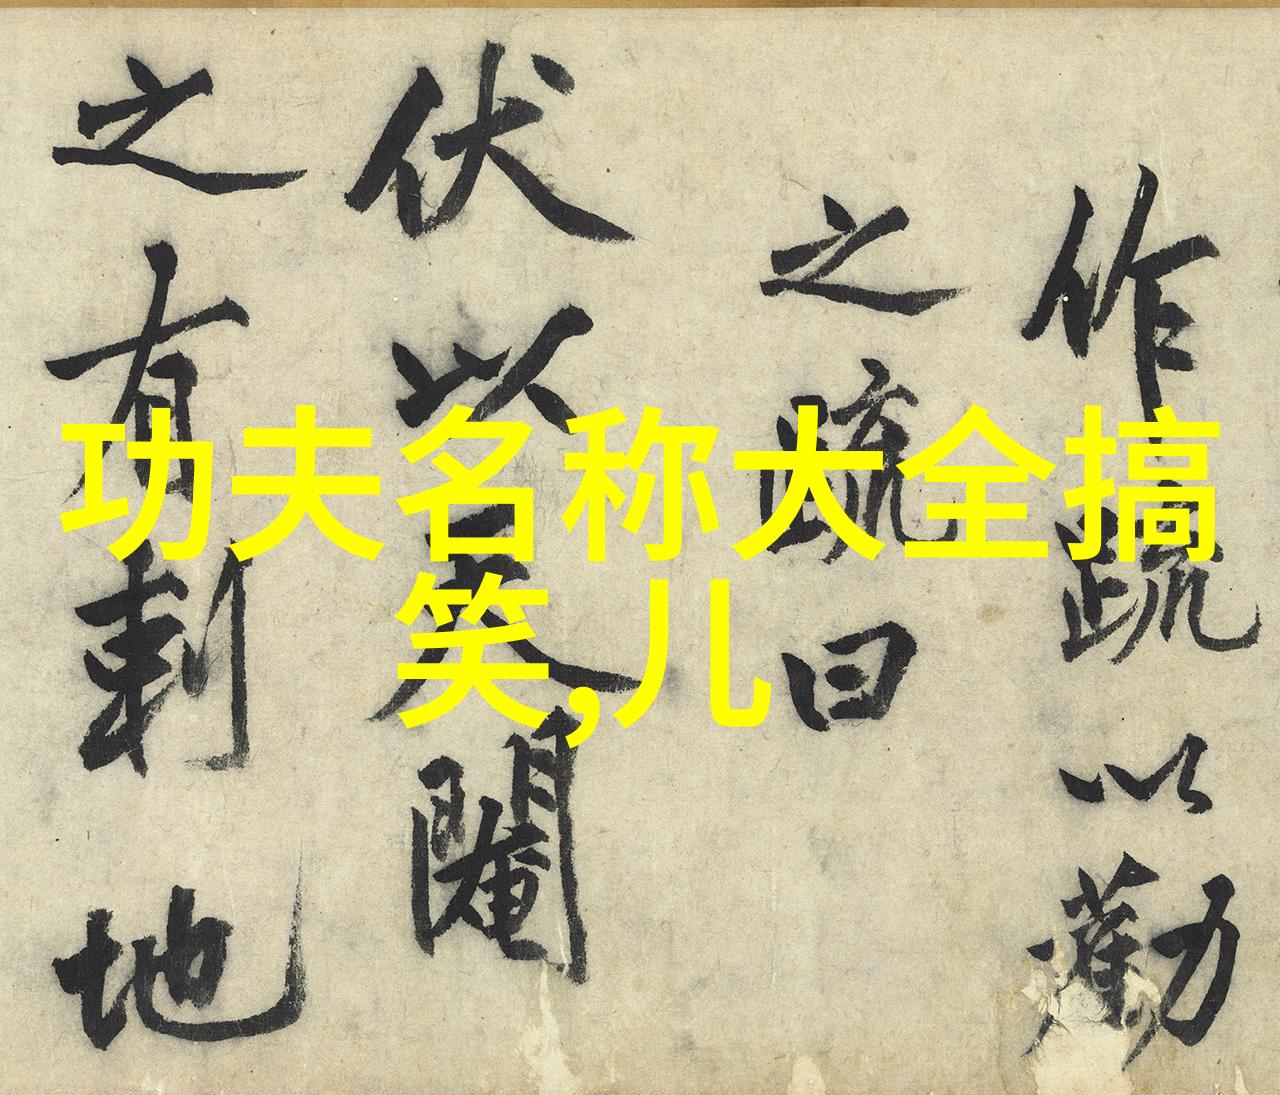 功夫名称大全搞
笑,儿
作疏以勸
之疏曰
伏以天閹
之有刺地